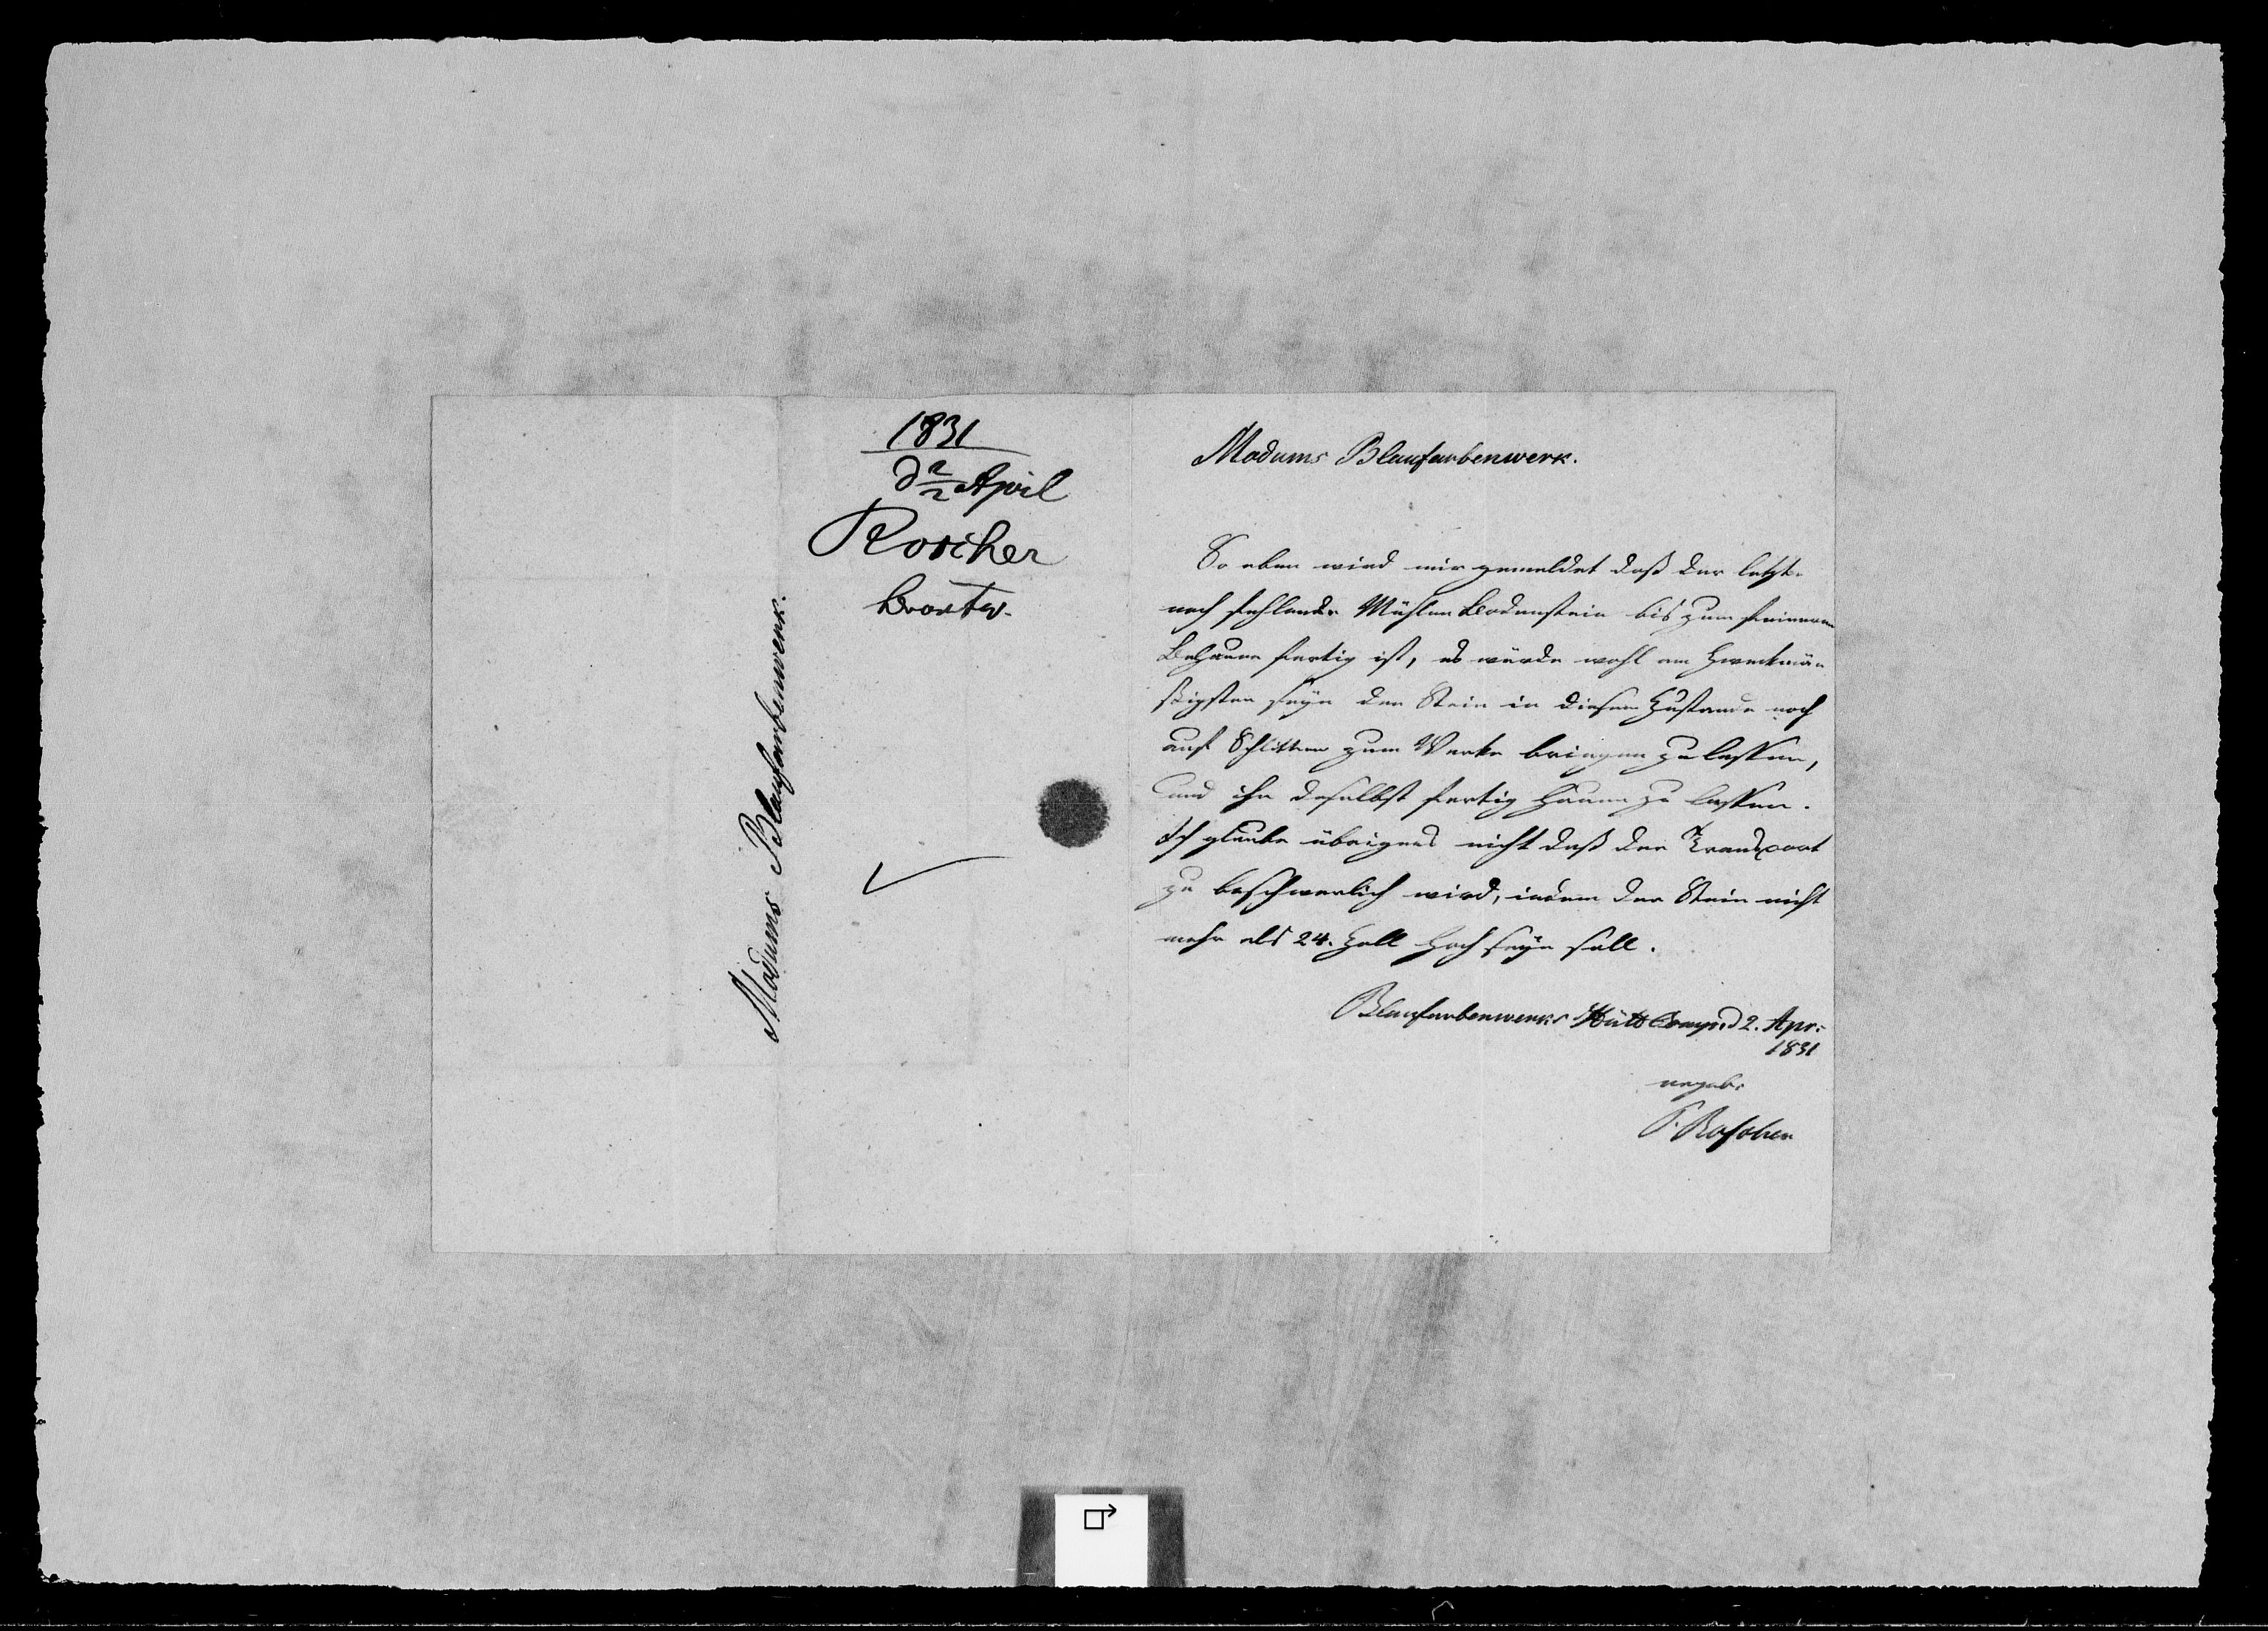 1831
d 2/2 April
Roscher
Modums Blaufarbenwerk.
Modums Blaufarbenwerk.
So eben wird mir gemeldet daß der letzte
noch fehlende Mühlen Bodenstein bis zum feineren
Behauen fertig ist, es würde wohl am Zweckmä-
ßigsten seyn den Stein in diesem Zustande noch
auf Schlitten zum Werke bringen zu lassen,
und ihn daselbst fertig hauen zu lassen.
Ich glaube übrigens nicht daß der Transport
zu beschwerlich wird, indem der Stein nicht
mehr als 24. Zoll hoch seyn soll.
Blaufarbenwerks d 2. Apr:
1831
F. Roscher